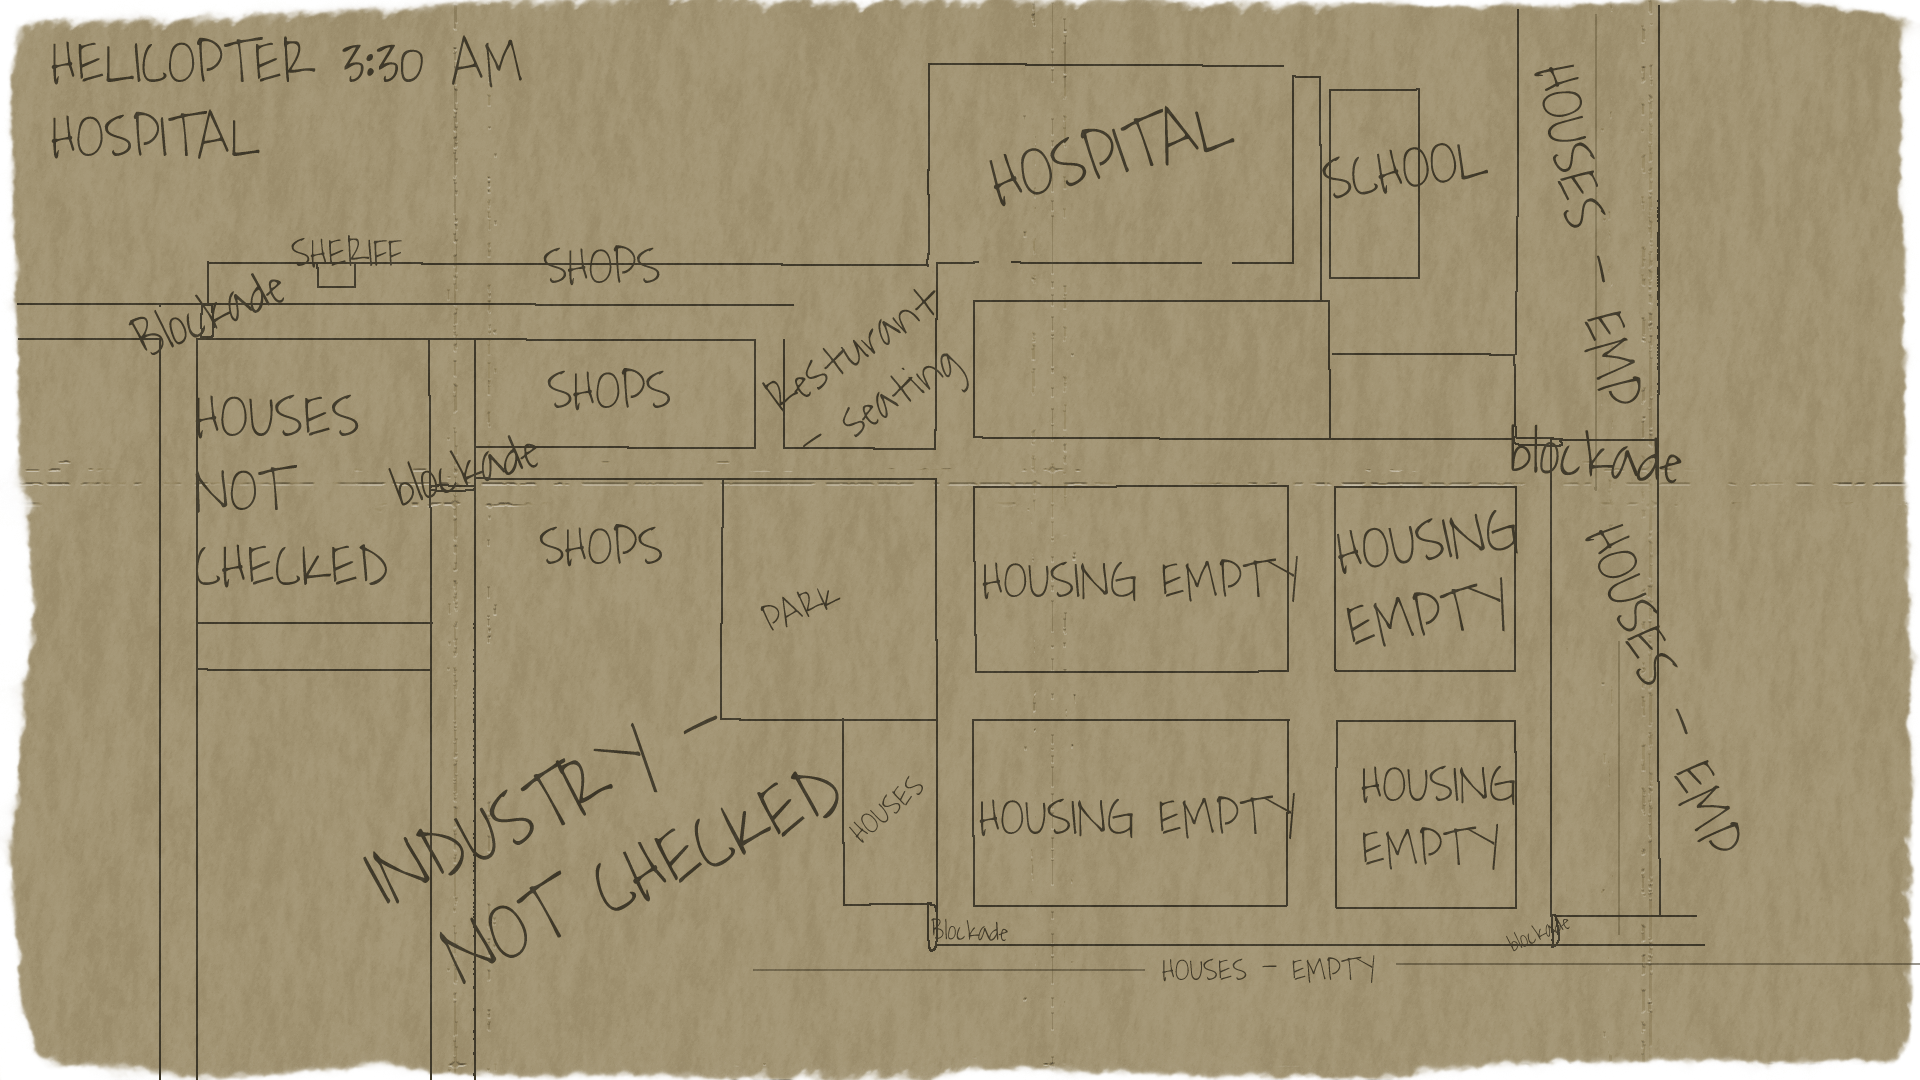 HELICOPTER 3:30 AM
HOSPITAL
HOSPITAL
SCHOOL
HOUSES - EMP
SHERIFF
SHOPS
Blockade
Resturant
- seating
HOUSES
NOT
CHECKED
SHOPS
blockade
blockade
SHOPS
PARK
HOUSING EMPTY
HOUSING
EMPTY
HOUSES - EMP
INDUSTRY -
NOT CHECKED
HOUSES
HOUSING EMPTY
HOUSING
EMPTY
Blockade
blockade
HOUSES - EMPTY